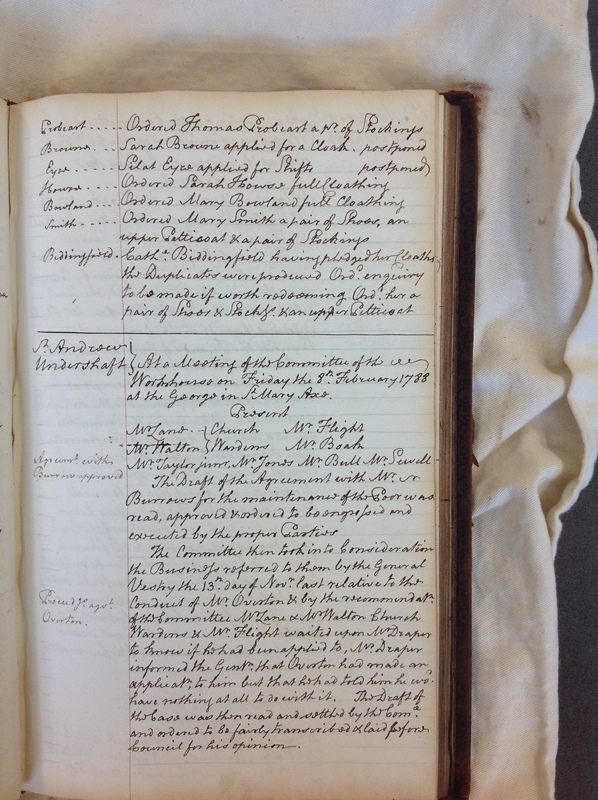 Probeart ..... Ordered Thomas Probeart a pr. of Stockings
Browne ... Sarah Browne applied for a Cloak. postponed
Eyre ..... Silat Eyre applied for Shifts postponed
Howse .... Ordered Sarah Howse full Cloathing
Bowland .... Ordered Mary Bowland full Cloathing
Smith ..... Ordered Mary Smith a pair of Shoes, an
upper Petticoat & a pair of Stockings
Biddingfield . Cath: Biddingfield having pledged her Cloaths
the Duplicates were produced Ord:d enquiry
to be made if worth redeeming Ord:d her a
pair of Shoes & Stockgs. & an upper Petticoat
St. Andrew
Undershaft
At a Meeting of the Committee of the
Workhouse on Friday the 8th. February 1788
at the George in St. Mary Axe.
Present
Mr. Lane .. } Church Mr. Flight
Mr. Walton } Wardens Mr. Boak
Mr. Taylor junr. Mr. Jones Mr. Bull Mr. Sewell
Agreemt. with
Burrow approved
The Draft of the Agreement with Mr.
Burrows for the maintenance of the Poor was
read, approved & ordered to be engrossed and
executed by the proper Parties
The Committee then took into Consideration
the Business referred to them by the General
Vestry the 13th. day of Novr. last relative to the
Proceedgs. agst.
Overton.
Conduct of Mr. Overton & by the recommendatn.
of the Committee Mr. Lane & Mr. Walton Church
Wardens & Mr. Flight waited upon Mr. Draper
to know if he had been applied to, Mr. Draper
informed the Gentn. that Overton had made an
applicatn. to him but that he had told him he wod.
have nothing at all to do with it. The Draft of
the Case was then read and settled by the Come.
and ordered to be fairly transcribed & laid before
Council for his opinion.